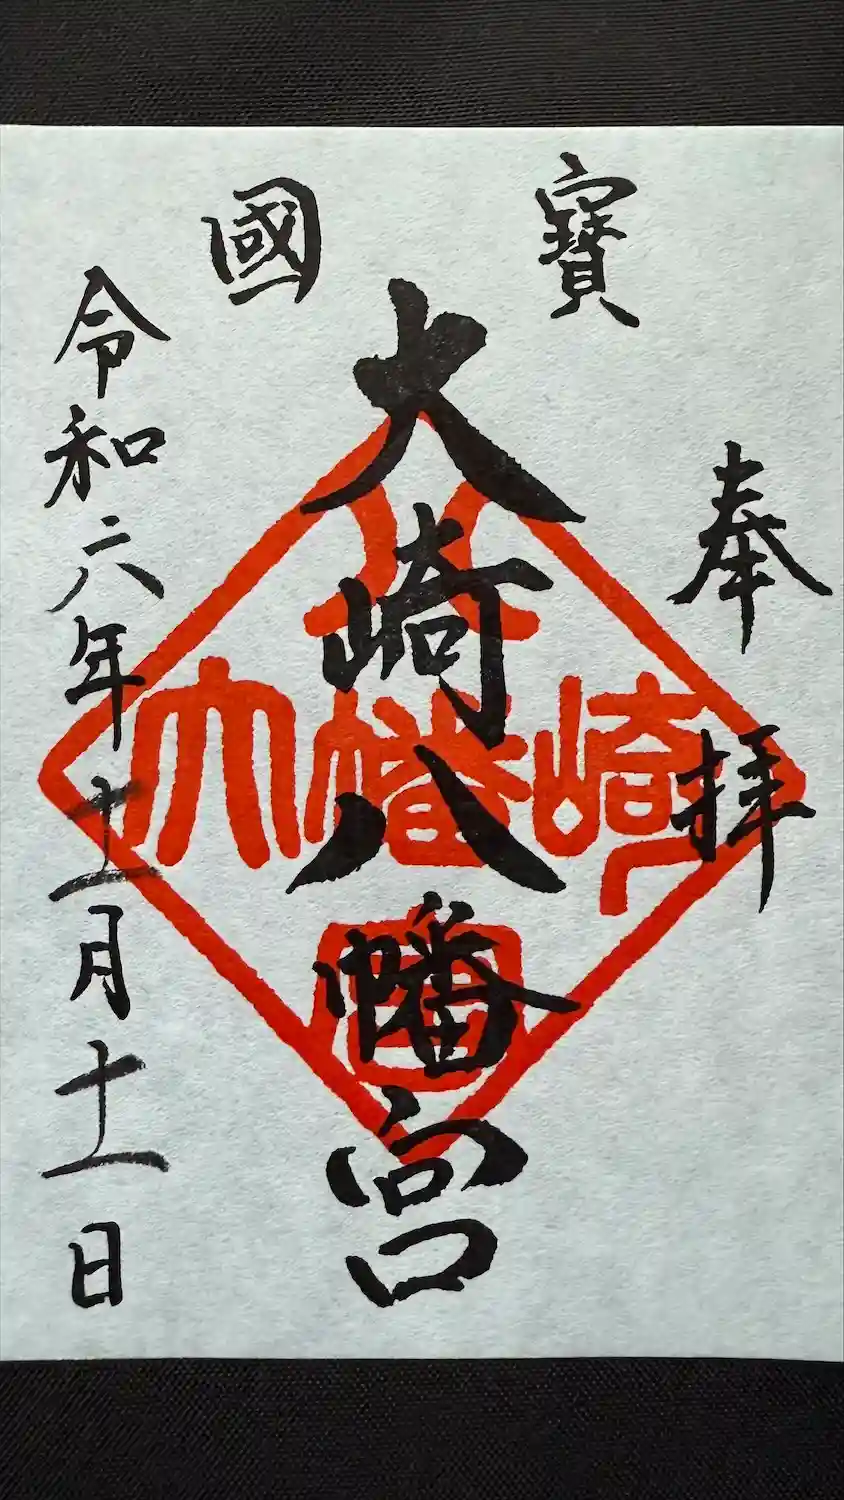 奉拝
國寶
大崎八幡宮
令和六年十一月十一日
大崎八幡宮